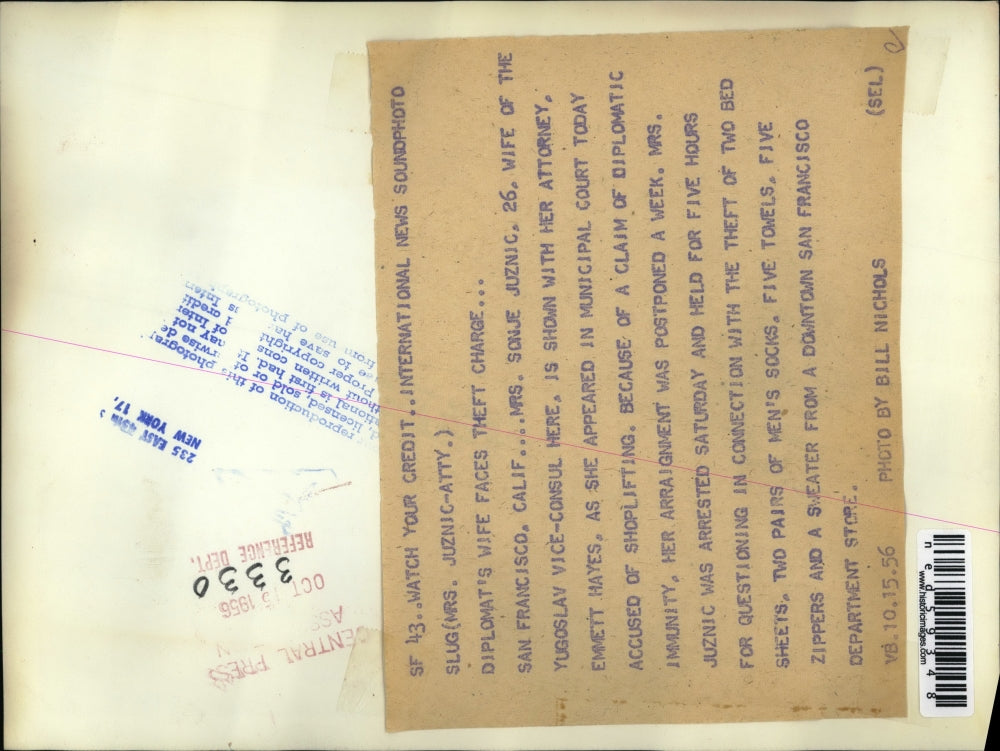 SF 43..WATCH YOUR CREDIT..INTERNATIONAL NEWS SOUNDPHOTO
SLUG(MRS. JUZNIC-ATTY.)
DIPLOMAT'S WIFE FACES THEFT CHARGE...
SAN FRANCISCO, CALIF....MRS. SONJE JUZNIC, 26, WIFE OF THE
YUGOSLAV VICE-CONSUL HERE, IS SHOWN WITH HER ATTORNEY,
EMMETT HAYES, AS SHE APPEARED IN MUNICIPAL COURT TODAY
ACCUSED OF SHOPLIFTING. BECAUSE OF A CLAIM OF DIPLOMATIC
IMMUNITY, HER ARRAIGNMENT WAS POSTPONED A WEEK. MRS.
JUZNIC WAS ARRESTED SATURDAY AND HELD FOR FIVE HOURS
FOR QUESTIONING IN CONNECTION WITH THE THEFT OF TWO BED
SHEETS, TWO PAIRS OF MEN'S SOCKS, FIVE TOWELS, FIVE
ZIPPERS AND A SWEATER FROM A DOWNTOWN SAN FRANCISCO
DEPARTMENT STORE.
VB.10.15.56 PHOTO BY BILL NICHOLS (SEL)
reproduction of this photogra
licensed, sold or
written
proper copyright
to save
from use of
235 EAST 45th
NEW YORK 17,
CENTRAL PRESS
OCT 15 1956
3330
REFERENCE DEPT.
www.historicimages.com
ned59348